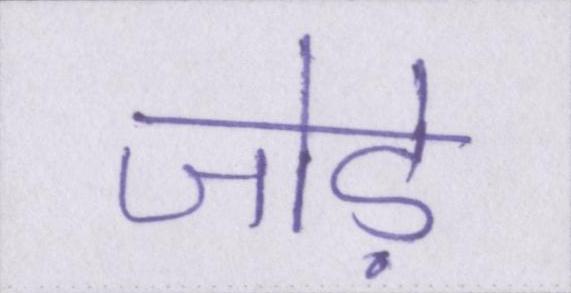 जोड़े